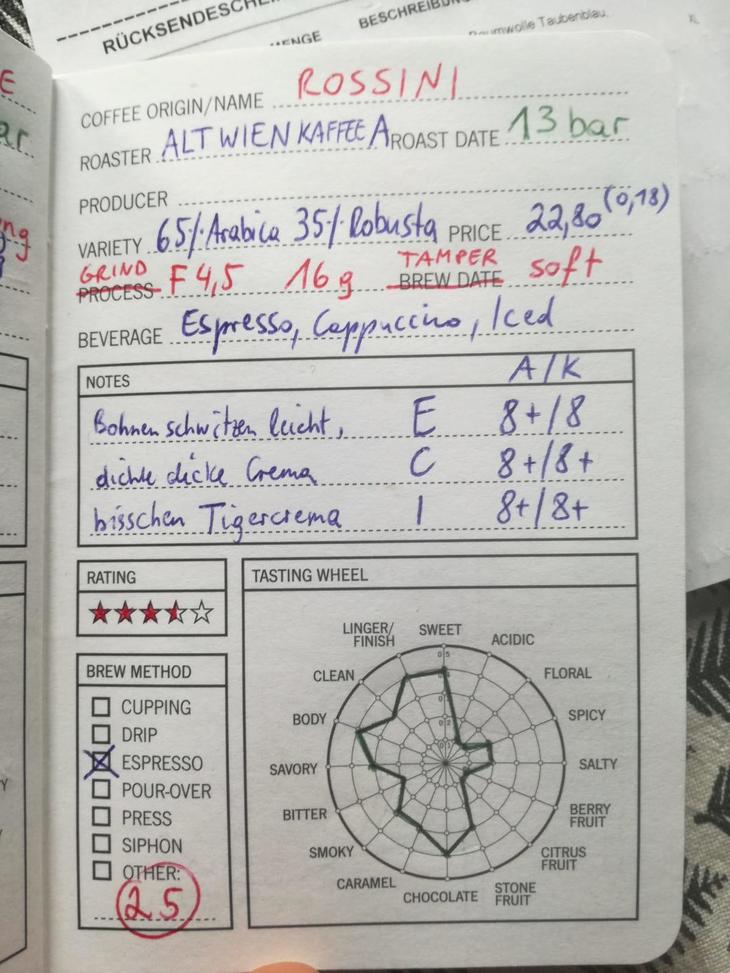 RÜCKSENDESCHE
MENGE
BESCHREIBUN
Baumwolle Taubenblau.
XL
COFFEE ORIGIN/NAME ROSSINI
ROASTER ALT WIEN KAFFEE A ROAST DATE 13 bar
PRODUCER
VARIETY 65% Arabica 35% Robusta PRICE 22,80 (0,18)
GRIND TAMPER
PROCESS F 4,5 16 g BREW DATE soft
BEVERAGE Espresso, Cappuccino, Iced
NOTES A/K
Bohnen schwitzen leicht, E 8+/8
dichte dicke Crema C 8+/8+
bisschen Tigercrema I 8+/8+
RATING
TASTING WHEEL
BREW METHOD
CUPPING
DRIP
ESPRESSO
POUR-OVER
PRESS
SIPHON
OTHER:
25
SWEET
ACIDIC
FLORAL
SPICY
SALTY
BERRY
FRUIT
CITRUS
FRUIT
STONE
FRUIT
CHOCOLATE
CARAMEL
SMOKY
BITTER
SAVORY
BODY
CLEAN
LINGER/
FINISH